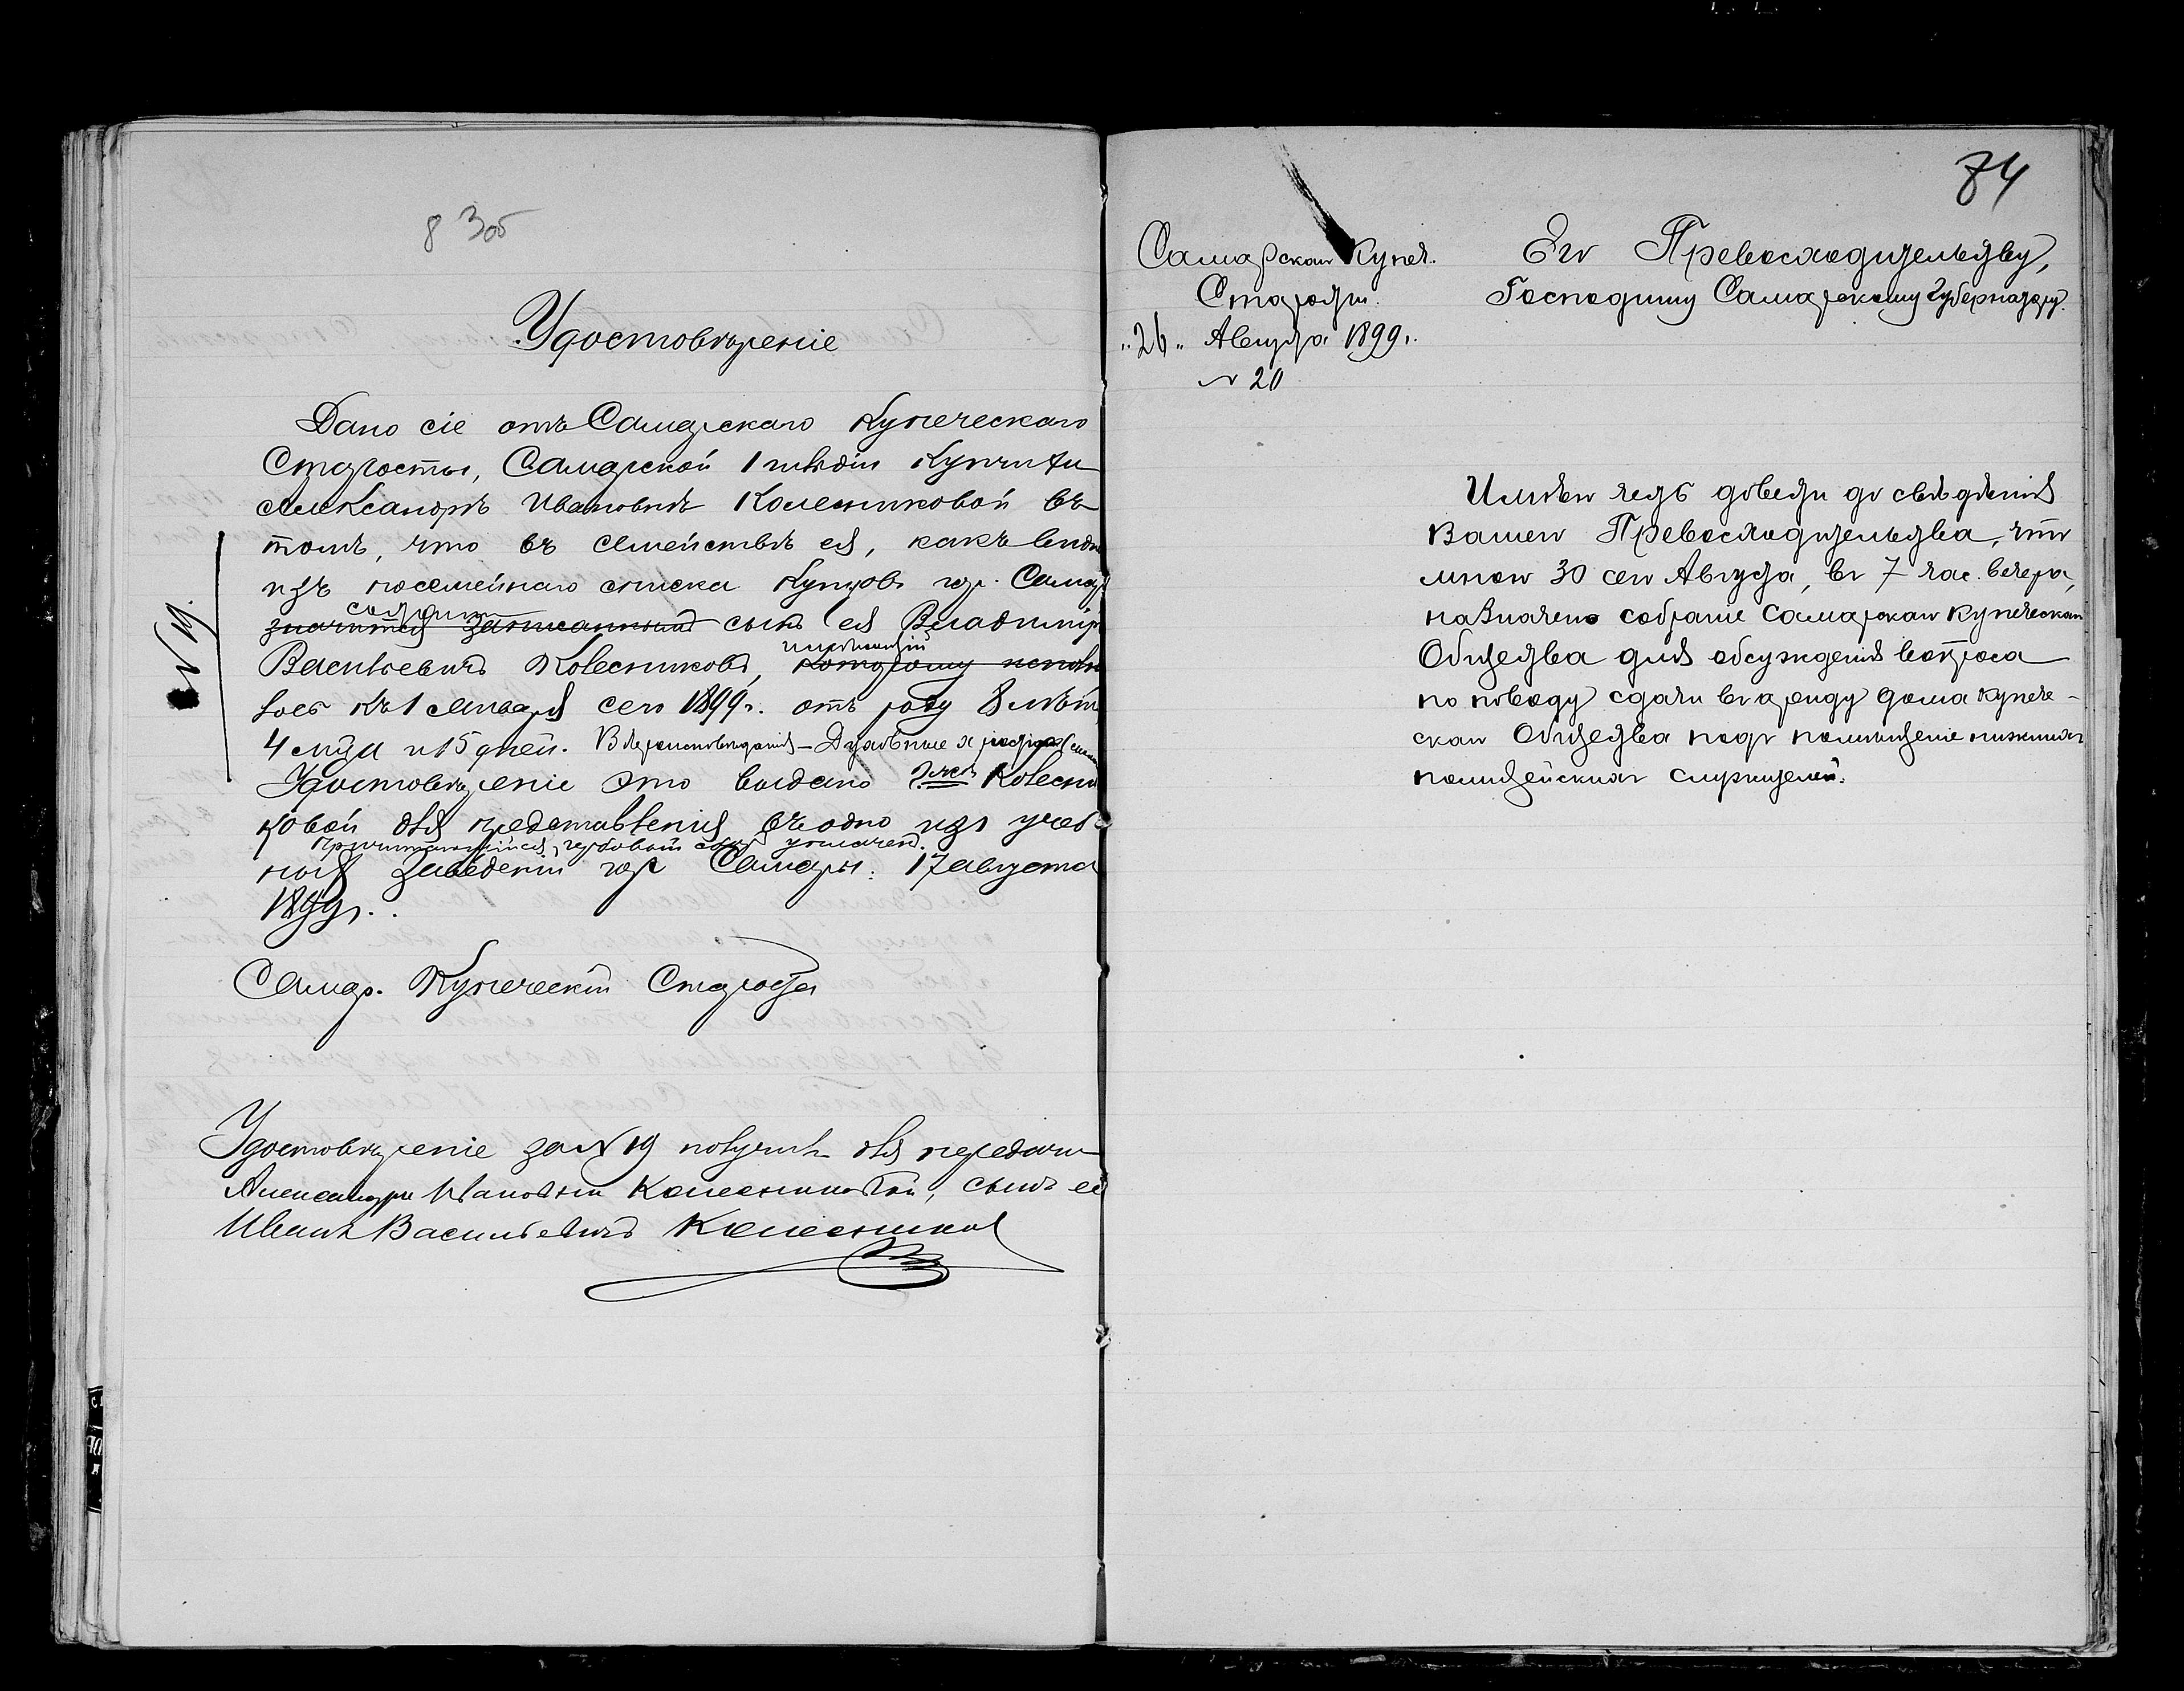 83об
Удостовѣреніе
Дано сіе отъ Самарскаго Купеческаго
Старосты, Самарской 1 гильдіи Купчихи
Александрѣ Ивановнѣ Колесниковой въ
томъ, что въ семействѣ ея, какъ видно
изъ посемейнаго списка Купцовъ гор. Самары
состоитъ
значится записанный сынъ ея Владиміръ
имѣющій
Васильевичъ Колесниковъ, которому исполни
лось къ 1 Января сего 1899 г. отъ роду 8 лѣтъ
4 м-ца и 15 дней. Вѣроисповѣданія
№ 19.
Удостовѣреніе это выдано Колесни
ковой для представленія въ одно изъ учеб-
Причитающійся гербовый сборъ уплаченъ.
ныхъ заведеній гор Самары. 17 августа
1899 г.
Самар. Купеческій Староста
Удостовѣреніе за № 19 получилъ для передачи
Александрѣ Ивановнѣ Колесниковой, сынъ ея
Иванъ Васильевичъ Колесников
84
Самарскаго Купеч.
Старосты.
"26" Августа 1899 г.
№ 20
Его Превосходительству,
Господину Самарскому Губернатору.
Имѣю честь довести до свѣдѣнія
Вашего Превосходительства, что
мною 30 сего Августа, въ 7 час. вечера,
назначено собраніе Самарскаго Купеческаго
Общества для обсужденія вопроса
по поводу сдачи въ аренду дома Купече-
скаго Общества подъ помѣщеніе нижнихъ
полицейскихъ служителей.